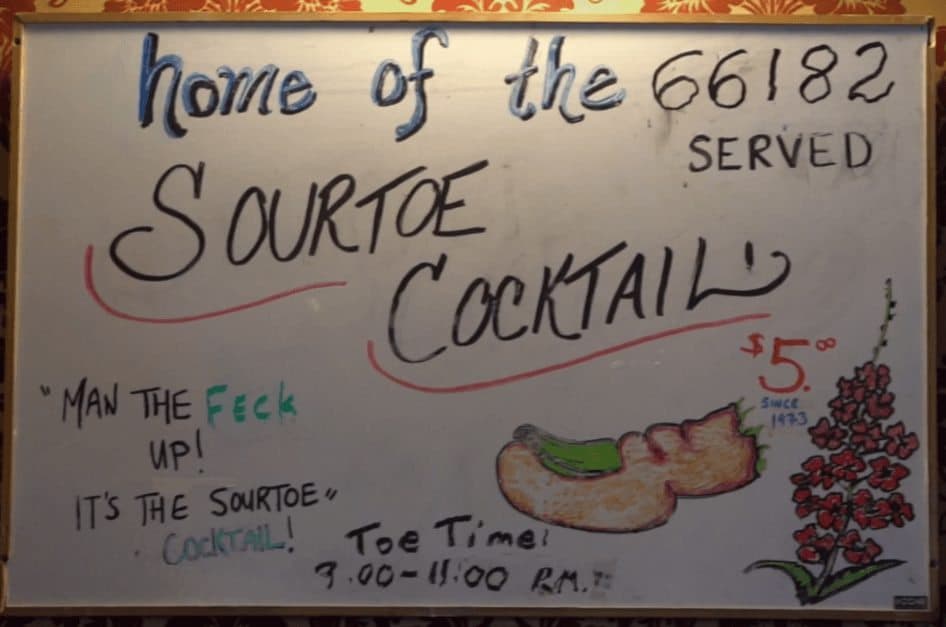 home of the 66182
SERVED
SOURTOE
COCKTAIL
$5.00
SINCE
1973
"MAN THE FECK
UP!
IT'S THE SOURTOE"
COCKTAIL!
Toe Time!
9:00-11:00 P.M.